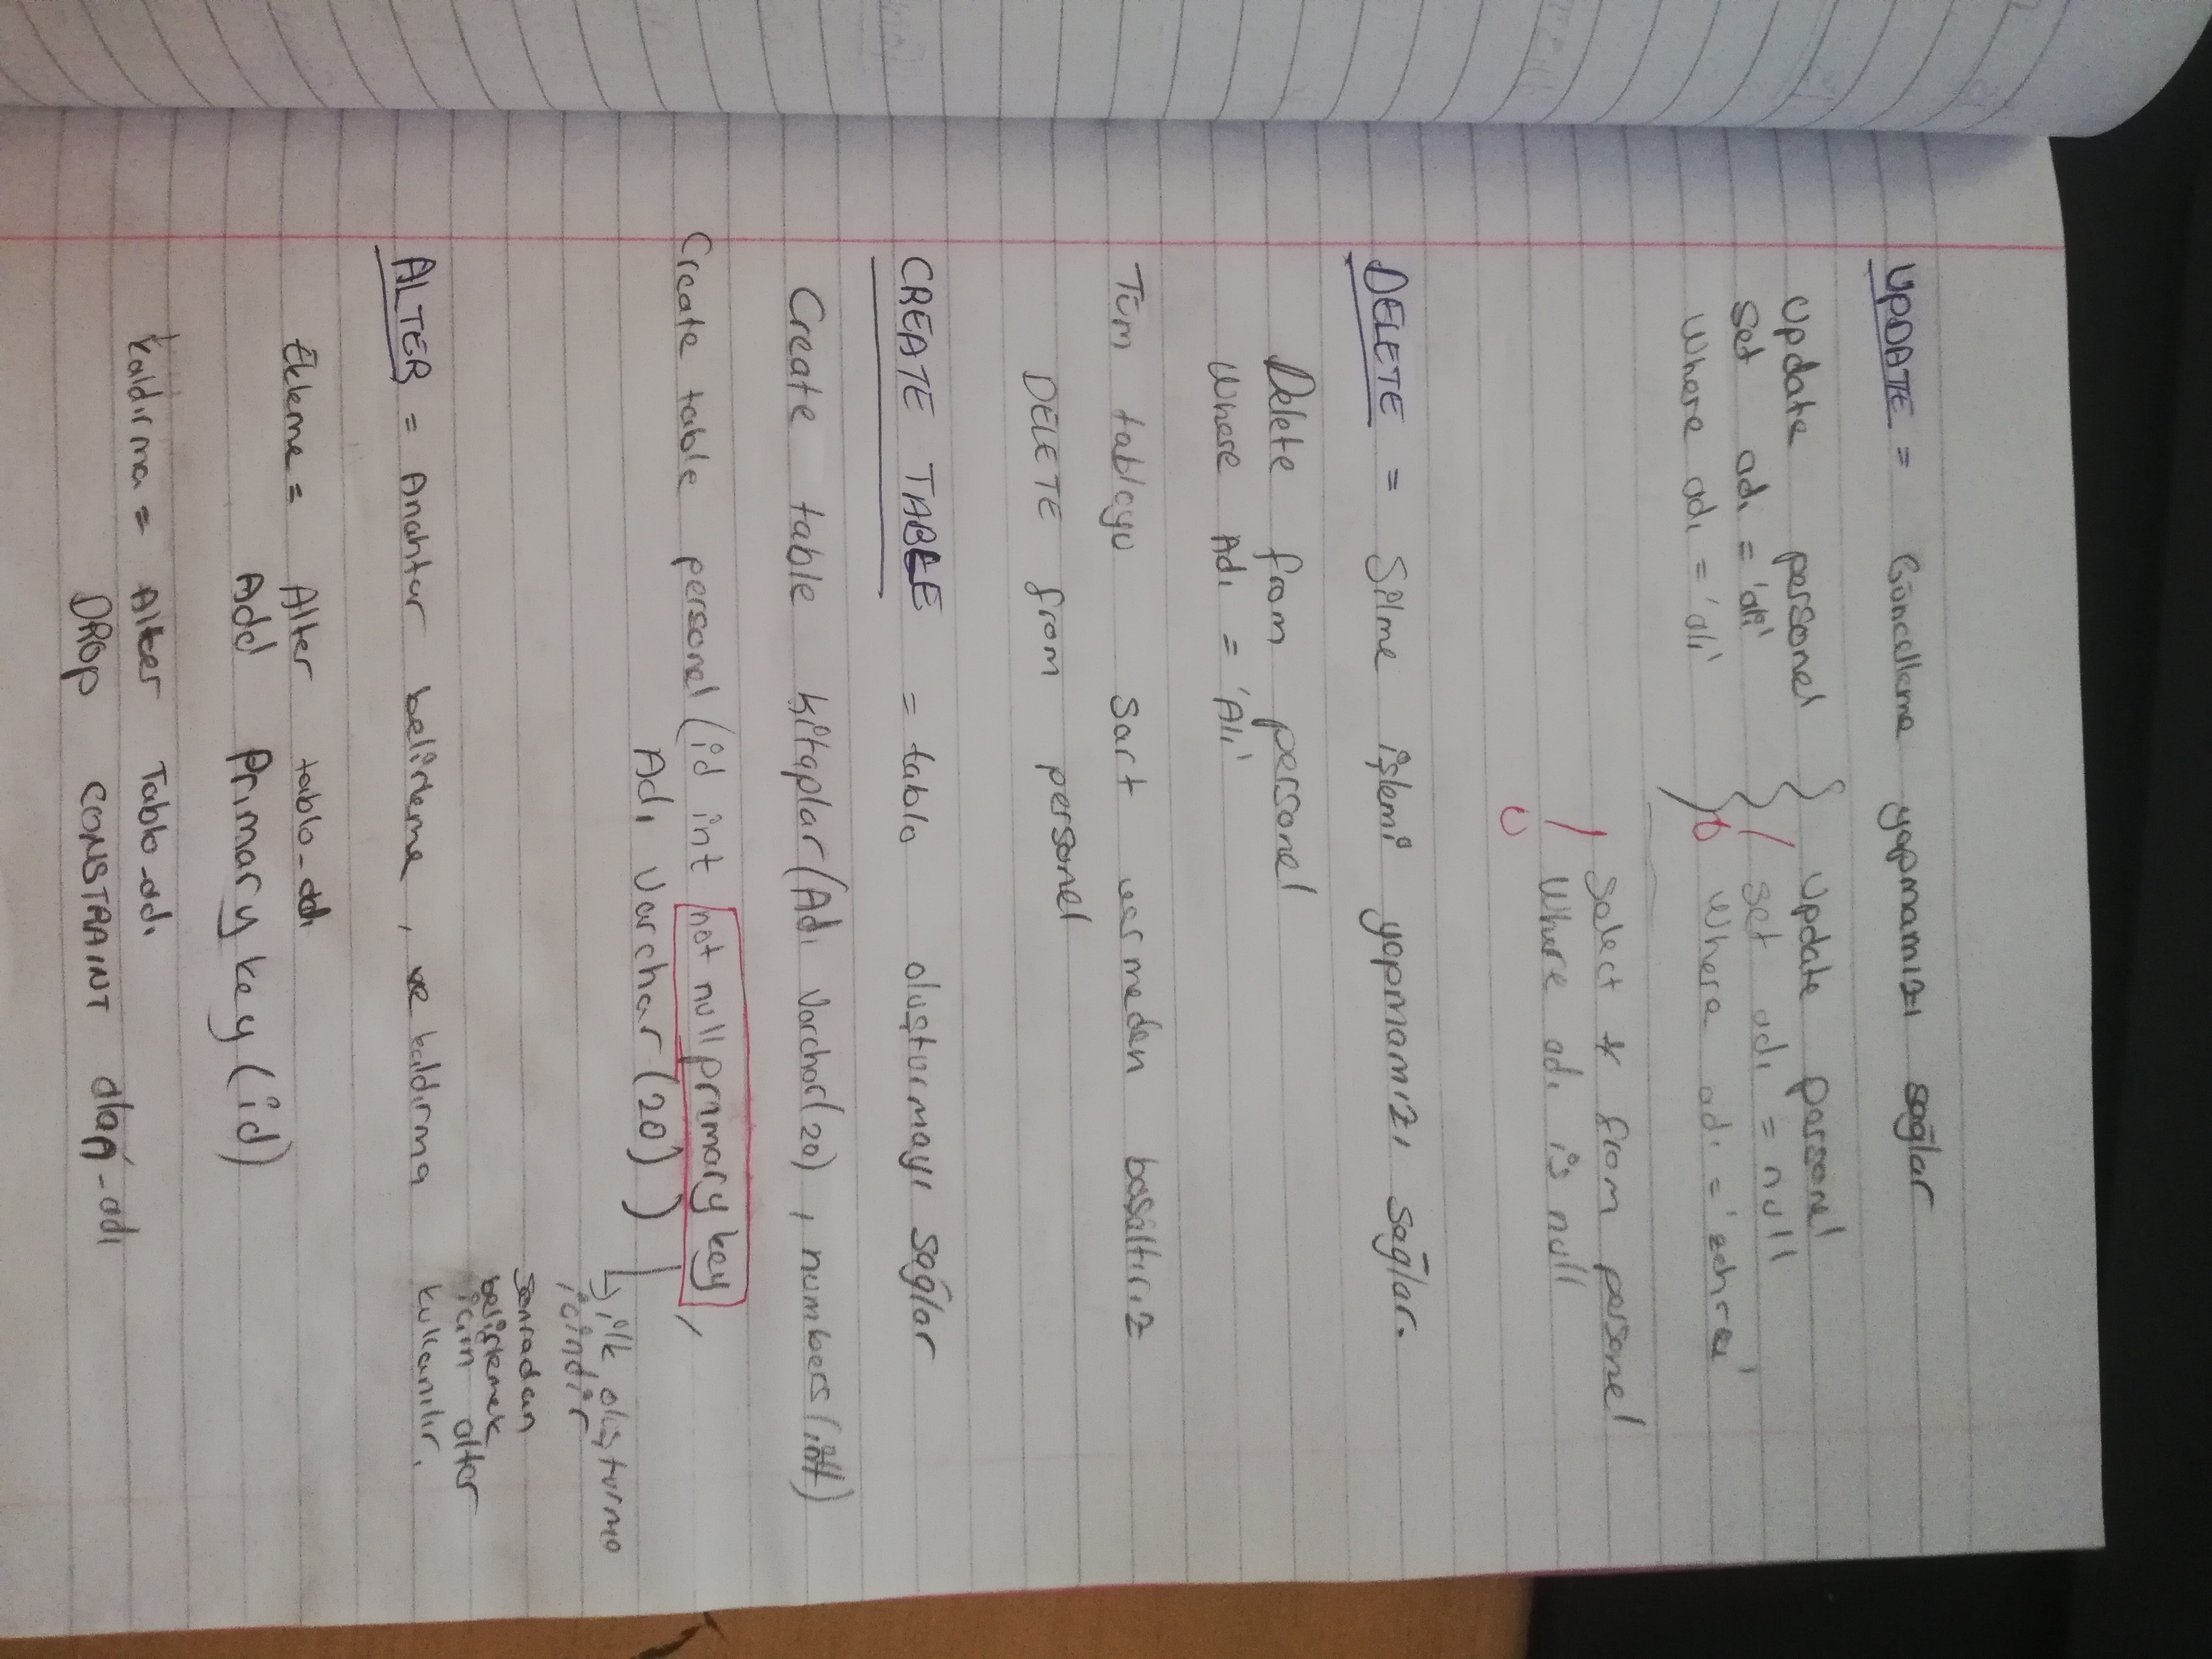 UPDATE = Güncelleme yapmamızı sağlar
Update personel
Set adı = 'ali'
Where adı = 'alı'
Update personel
set adı = null
Where adı = 'zehra'
Select * from personel
Where adı is null
DELETE = Silme işlemi yapmamızı sağlar.
Delete from personel
Where Adı = 'Alı'
Tüm tabloyu sart vermeden bosaltırız
DELETE from personel
CREATE TABLE = tablo oluşturmayı sağlar
Create table kitaplar(Adı Varchar(20) , numbers(int)
Create table personel (id int not null prımary key ,
Adı Varchar (20) )
ilk oluşturma
icindir
sonradan
belirlemek
icin alter
kullanılır.
ALTER = Anahtar belirleme , ve kaldırma
Ekleme = Alter tablo_adı
Add Primary key (id)
kaldırma = Alter Tablo_adı
DROP CONSTRAINT alan_adı